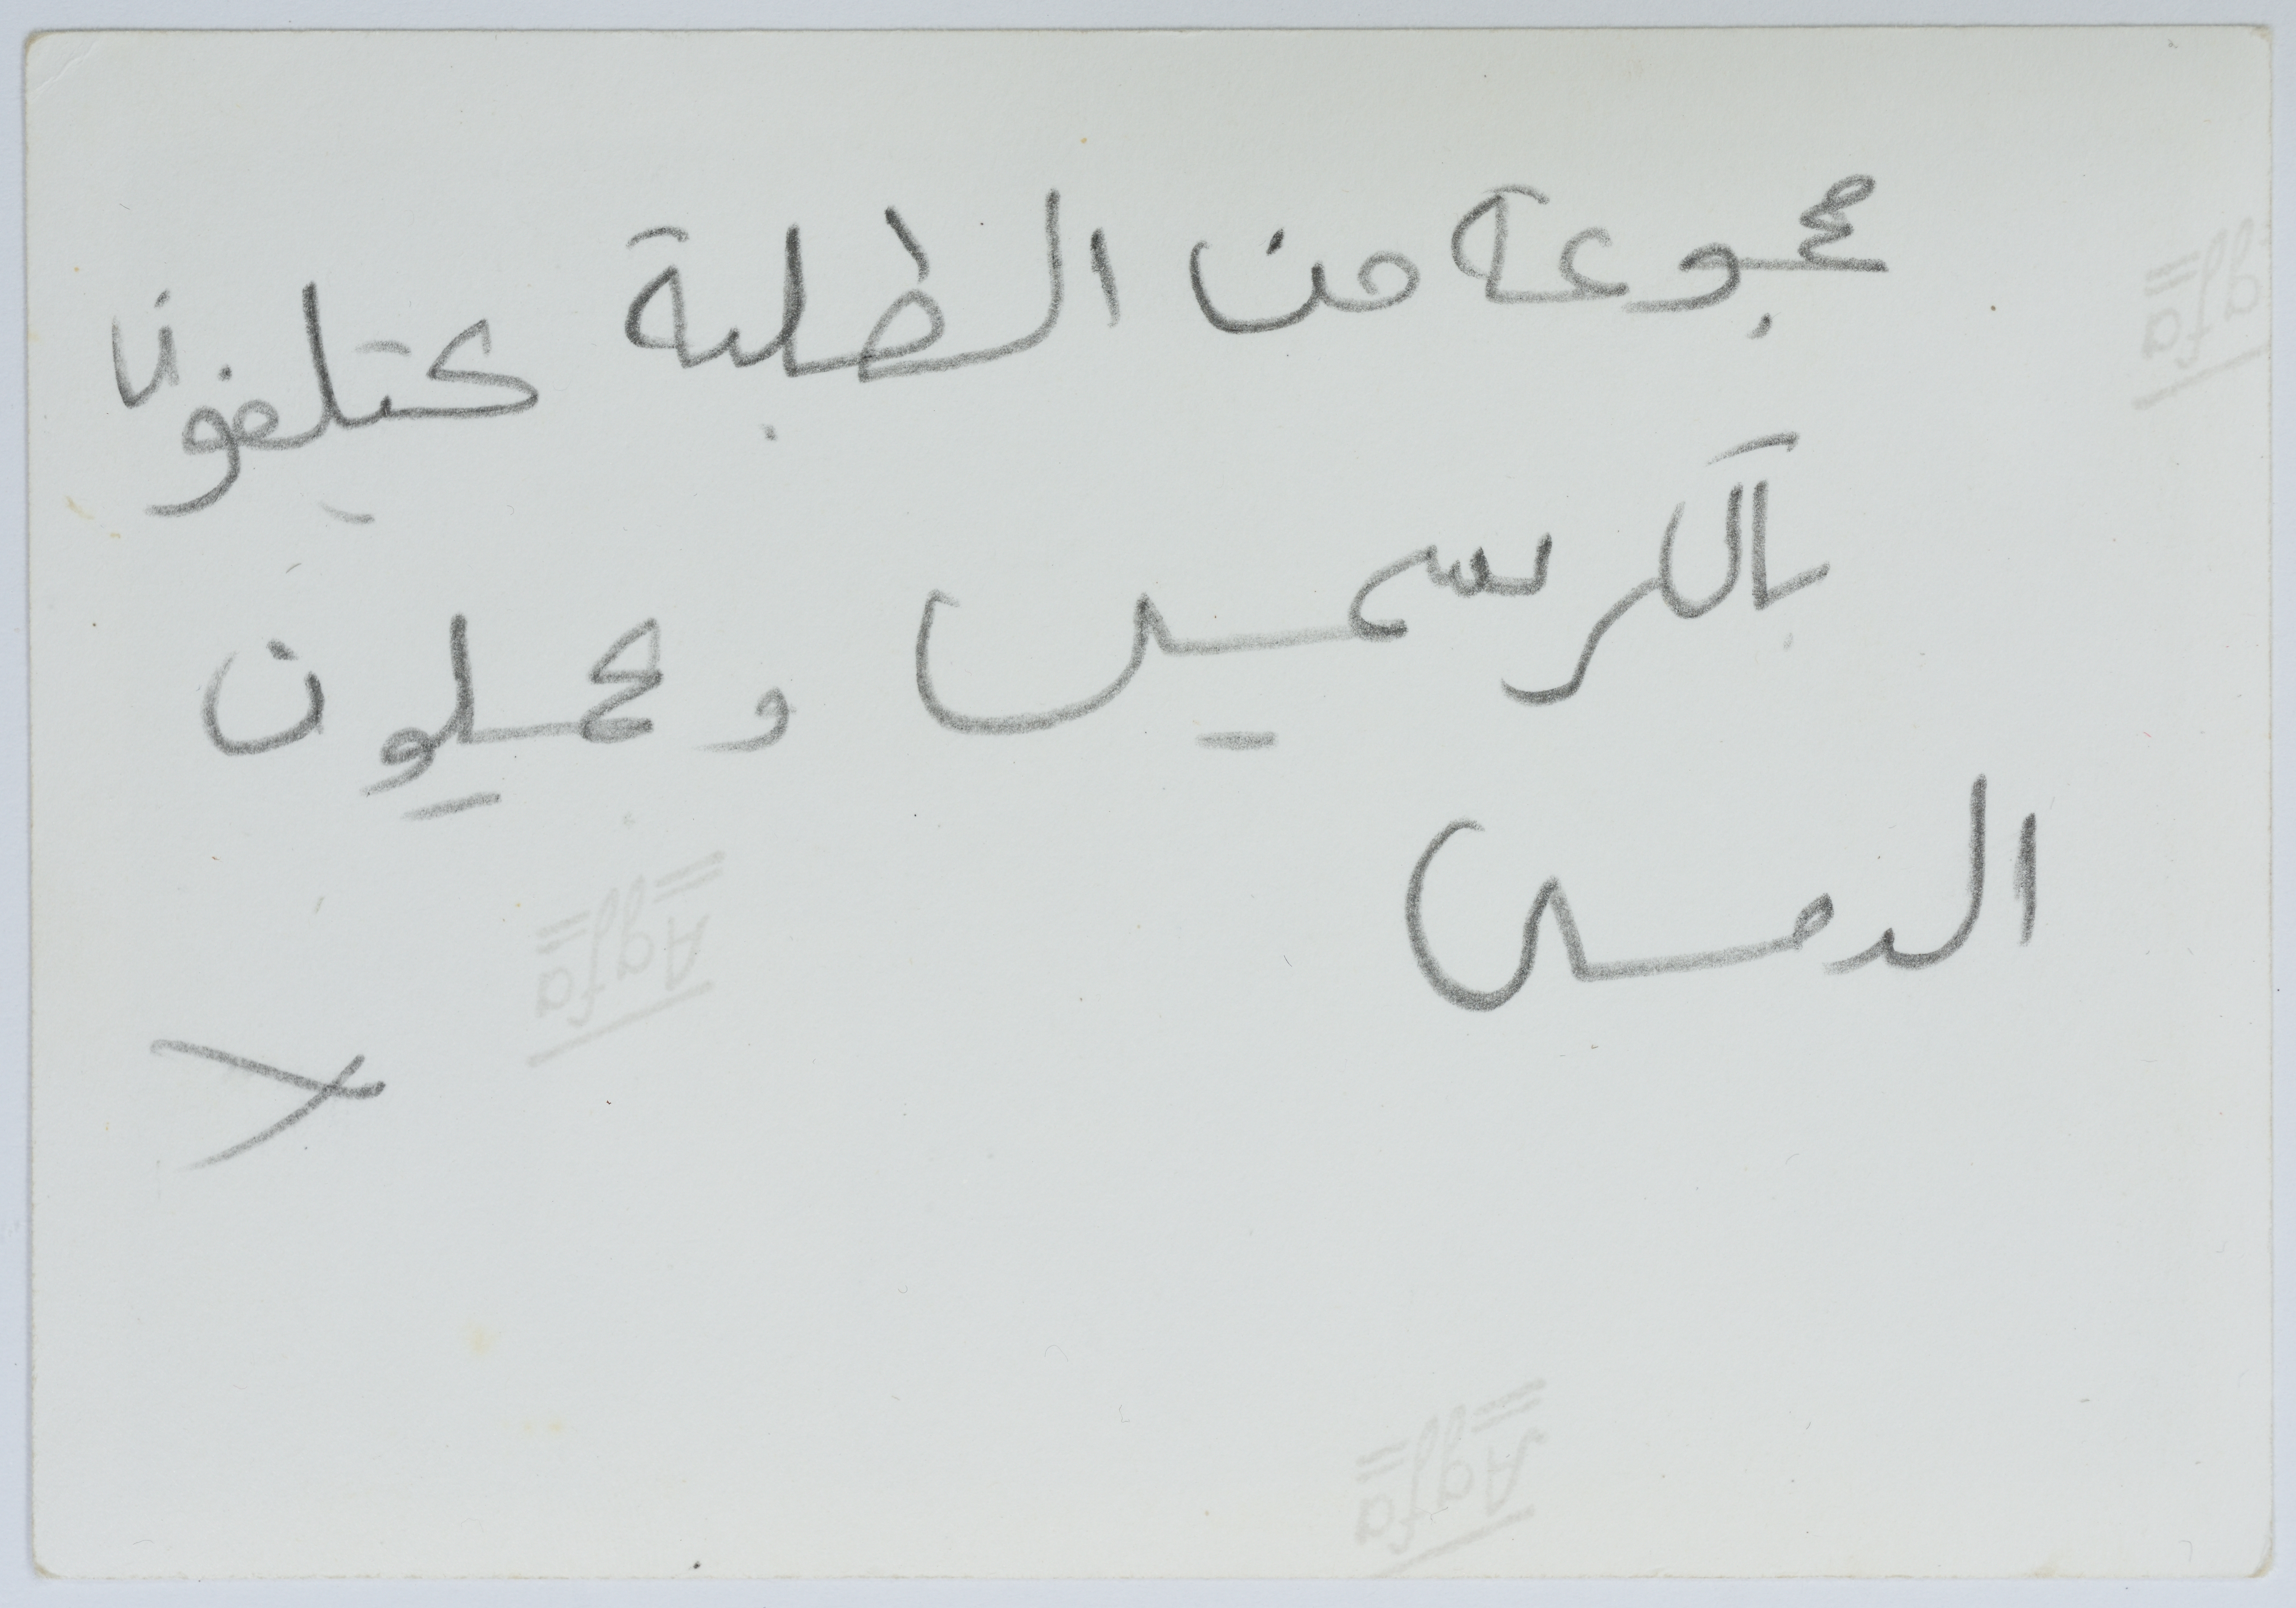 مجموعة من الطلبة كتيلغون
بالكرسميس ويحملون
الدمى
Agfa
Agfa
Agfa